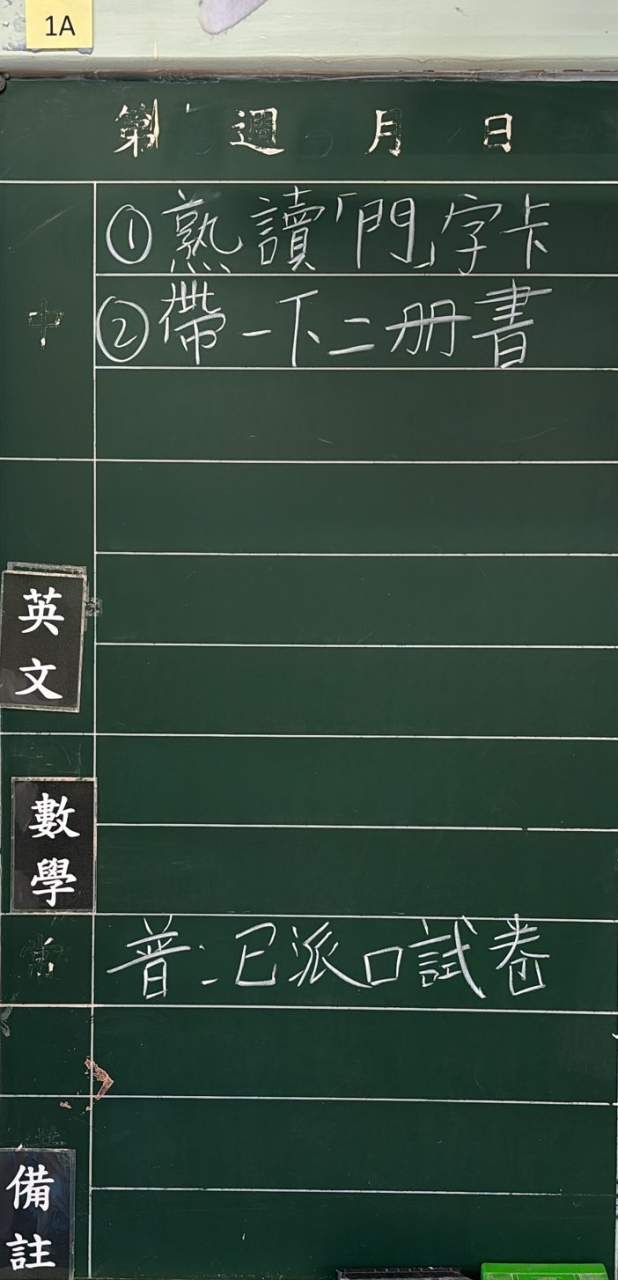 1A
第 週 月 日
中
①熟讀「門」字卡
②帶一下二冊書
英文
數學
常
普:已派口試卷
備註